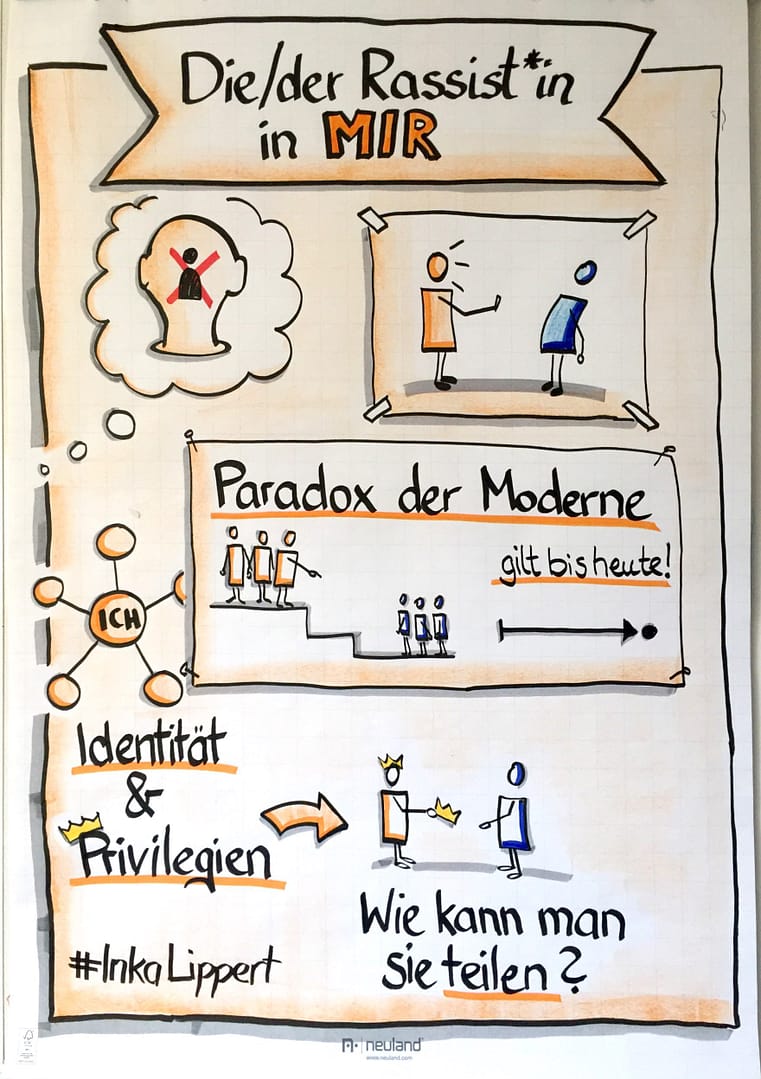 Die/der Rassist*in
in MIR
Paradox der Moderne
gilt bis heute!
ICH
Identität
&
Privilegien
Wie kann man
sie teilen?
#InkaLippert
neuland
www.neuland.com